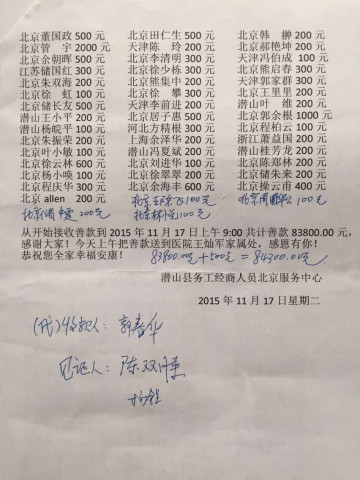 北京董国政 500 元 北京田仁生 500 元 北京韩 翀 200 元
北京管 宇 2000 元 天津陈 玲 200 元 北京郝艳坤 200 元
北京余朝晖 500 元 北京李清明 300 元 天津冯伯成 100 元
江苏储国红 300 元 北京徐少栋 300 元 北京熊启春 300 元
北京朱双海 200 元 北京朱集中 200 元 天津李琼 300 元
北京徐 虹 100 元 北京徐 攀 300 元 北京王里里 200 元
北京储长友 500 元 天津李前进 200 元 潜山叶 维 200 元
潜山王小平 200 元 北京居子惠 500 元 北京郭余根 1000 元
潜山杨皖平 100 元 河北方精根 300 元 北京程柏云 100 元
北京朱振荣 200 元 上海余泽华 200 元 浙江萧益国 200 元
北京叶小敏 100 元 潜山冯夏斌 200 元 潜山桂芳龙 200 元
北京徐云林 600 元 北京刘进华 100 元 北京陈郑林 200 元
北京杨小唤 100 元 北京徐翠翠 200 元 北京储朱来 200 元
北京程庆华 300 元 北京余海丰 600 元 北京操云甫 400 元
北京 allen 200 元 100元 100元
200元 100元
从开始接收善款到 2015 年 11 月 17 日上午 9:00 共计善款 83800.00 元,
感谢大家！今天上午把善款送到医院王灿军家属处，感恩有你！
恭祝您全家幸福安康！ 83800.00元+500元=84300.00元
潜山县务工经商人员北京服务中心
2015 年 11 月 17 日星期二
(代)收款人：郭春华
见证人：陈双